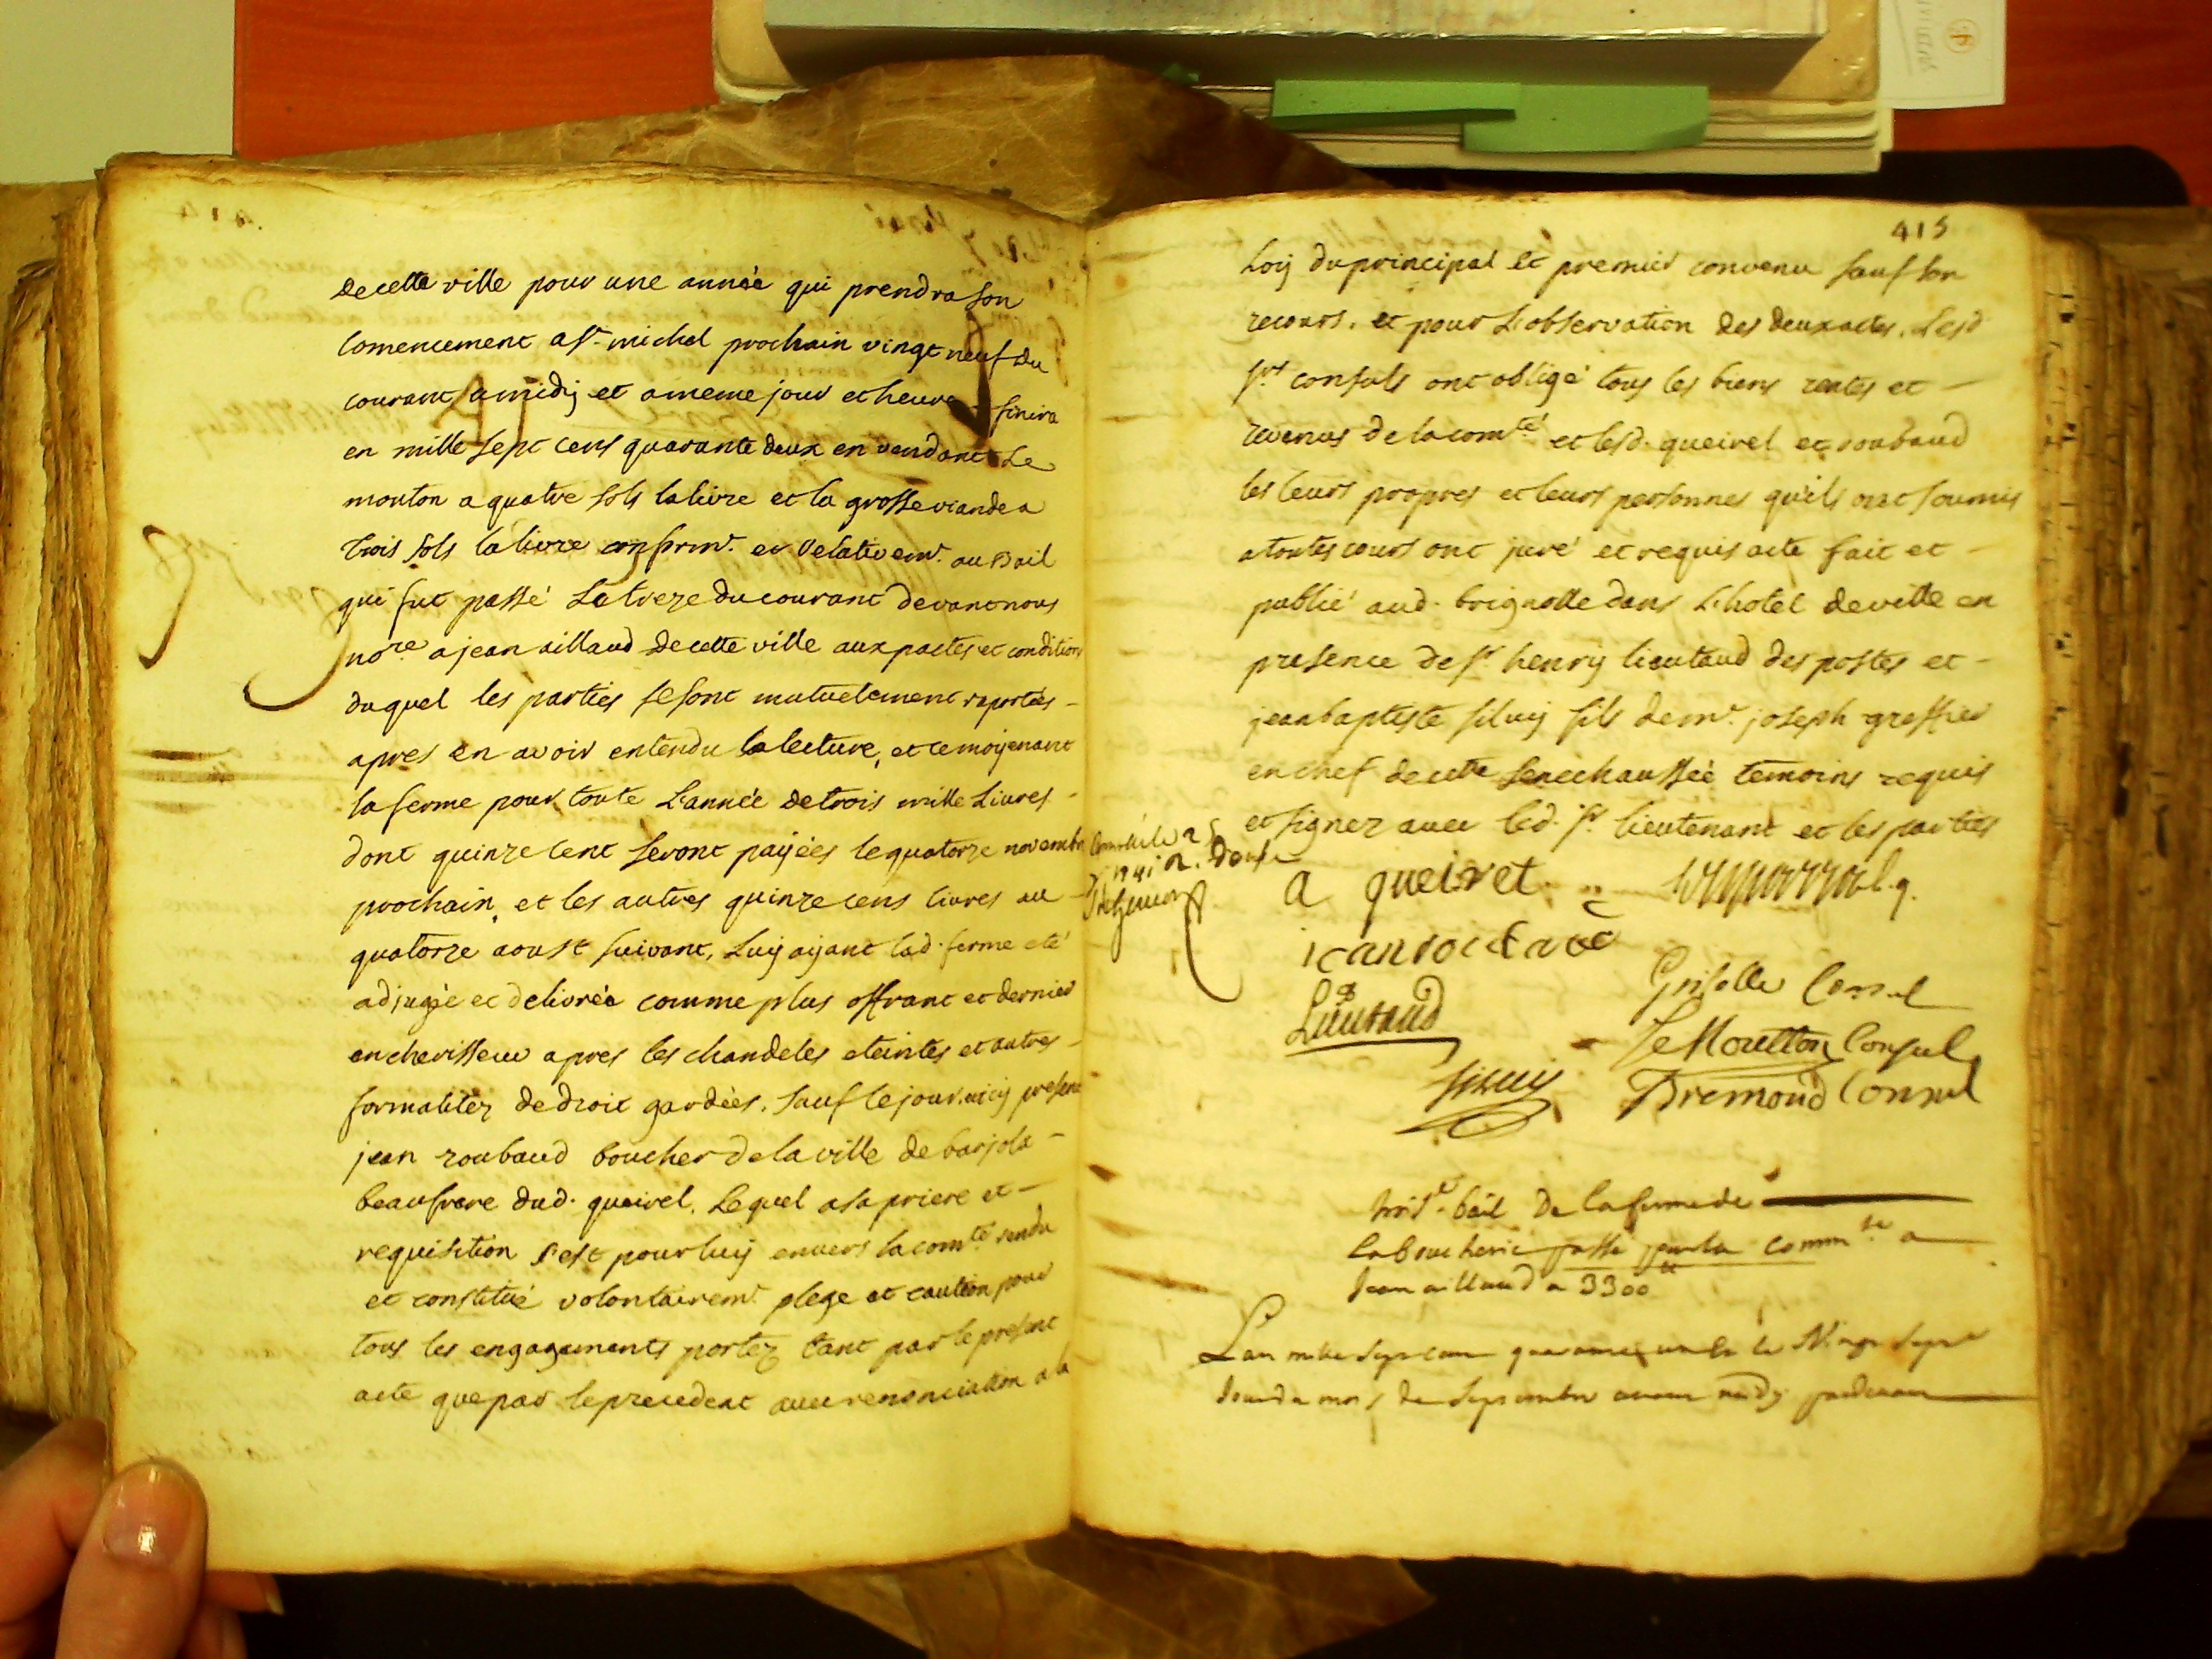 de cette ville pour une année qui prendra son
comencement a st michel prochain vingt neuf du
courant a midij et a meme jour et heure finira
en mille sept cens quarante deux en vendant Le
mouton a quatre sols la livre et la grosse viande a
trois sols la livre conformt. et relativemt. au Bail
qui fut passé Le treze du courant devant nous
nore a jean aillaud de cette ville aux pactes et conditions
duquel les parties se sont mutuelement raportées -
apres en avoir entendu la lecture, et ce moijenant
la ferme pour toute L'année de trois mille Livres -
dont quinze cent seront païjées le quatorze novembre
prochain, et les autres quinze cens livres au -
quatorze aoust suivant, Luij aijant lad. ferme eté
adjugée et delivrée comme plus offrant et dernier
encherisseur apres les chandeles eteintes et autres -
formalitez de droit gardées. sauf le jour. icij present
jean roubaud boucher de la ville de barjols -
beaufrere dud. queirel. Lequel a sa priere et -
requisition s'est pour luij envers la comté rendu
et constitué volontairemt. plege et caution pour
tous les engagements portez tant par le present
acte que par le precedent avec renonciation a la
415
Loij du principal et premier convenu sauf son
recours. et pour L'observation des deux actes. Lesd
srs consuls ont obligé tous les biens rentes et -
revenus de la comté et lesd. queirel et roubaud
les leurs propres et leurs personnes qu'ils ont soumis
a toutes cours ont juré et requis acte fait et -
publié aud. brignolle dans L'hotel de ville en
presence de sr henrij lieutaud des postes et -
jean baptiste siluij fils de mr. joseph greffier
en chef de cette senechaussée temoins requis
et signez avec led. sr. lieutenant et les parties
1741
a queirel
Lieutaud
Grisolle Consul
Le Moutton Consul
siluij
Bremond Consul
troise. bail De la ferme de
la Boucherie passé par la commte a
Jean aillaud a 3300
L'an mille sept cens quarante un et le Vingt sept
du mois de septembre avant midij pardevant